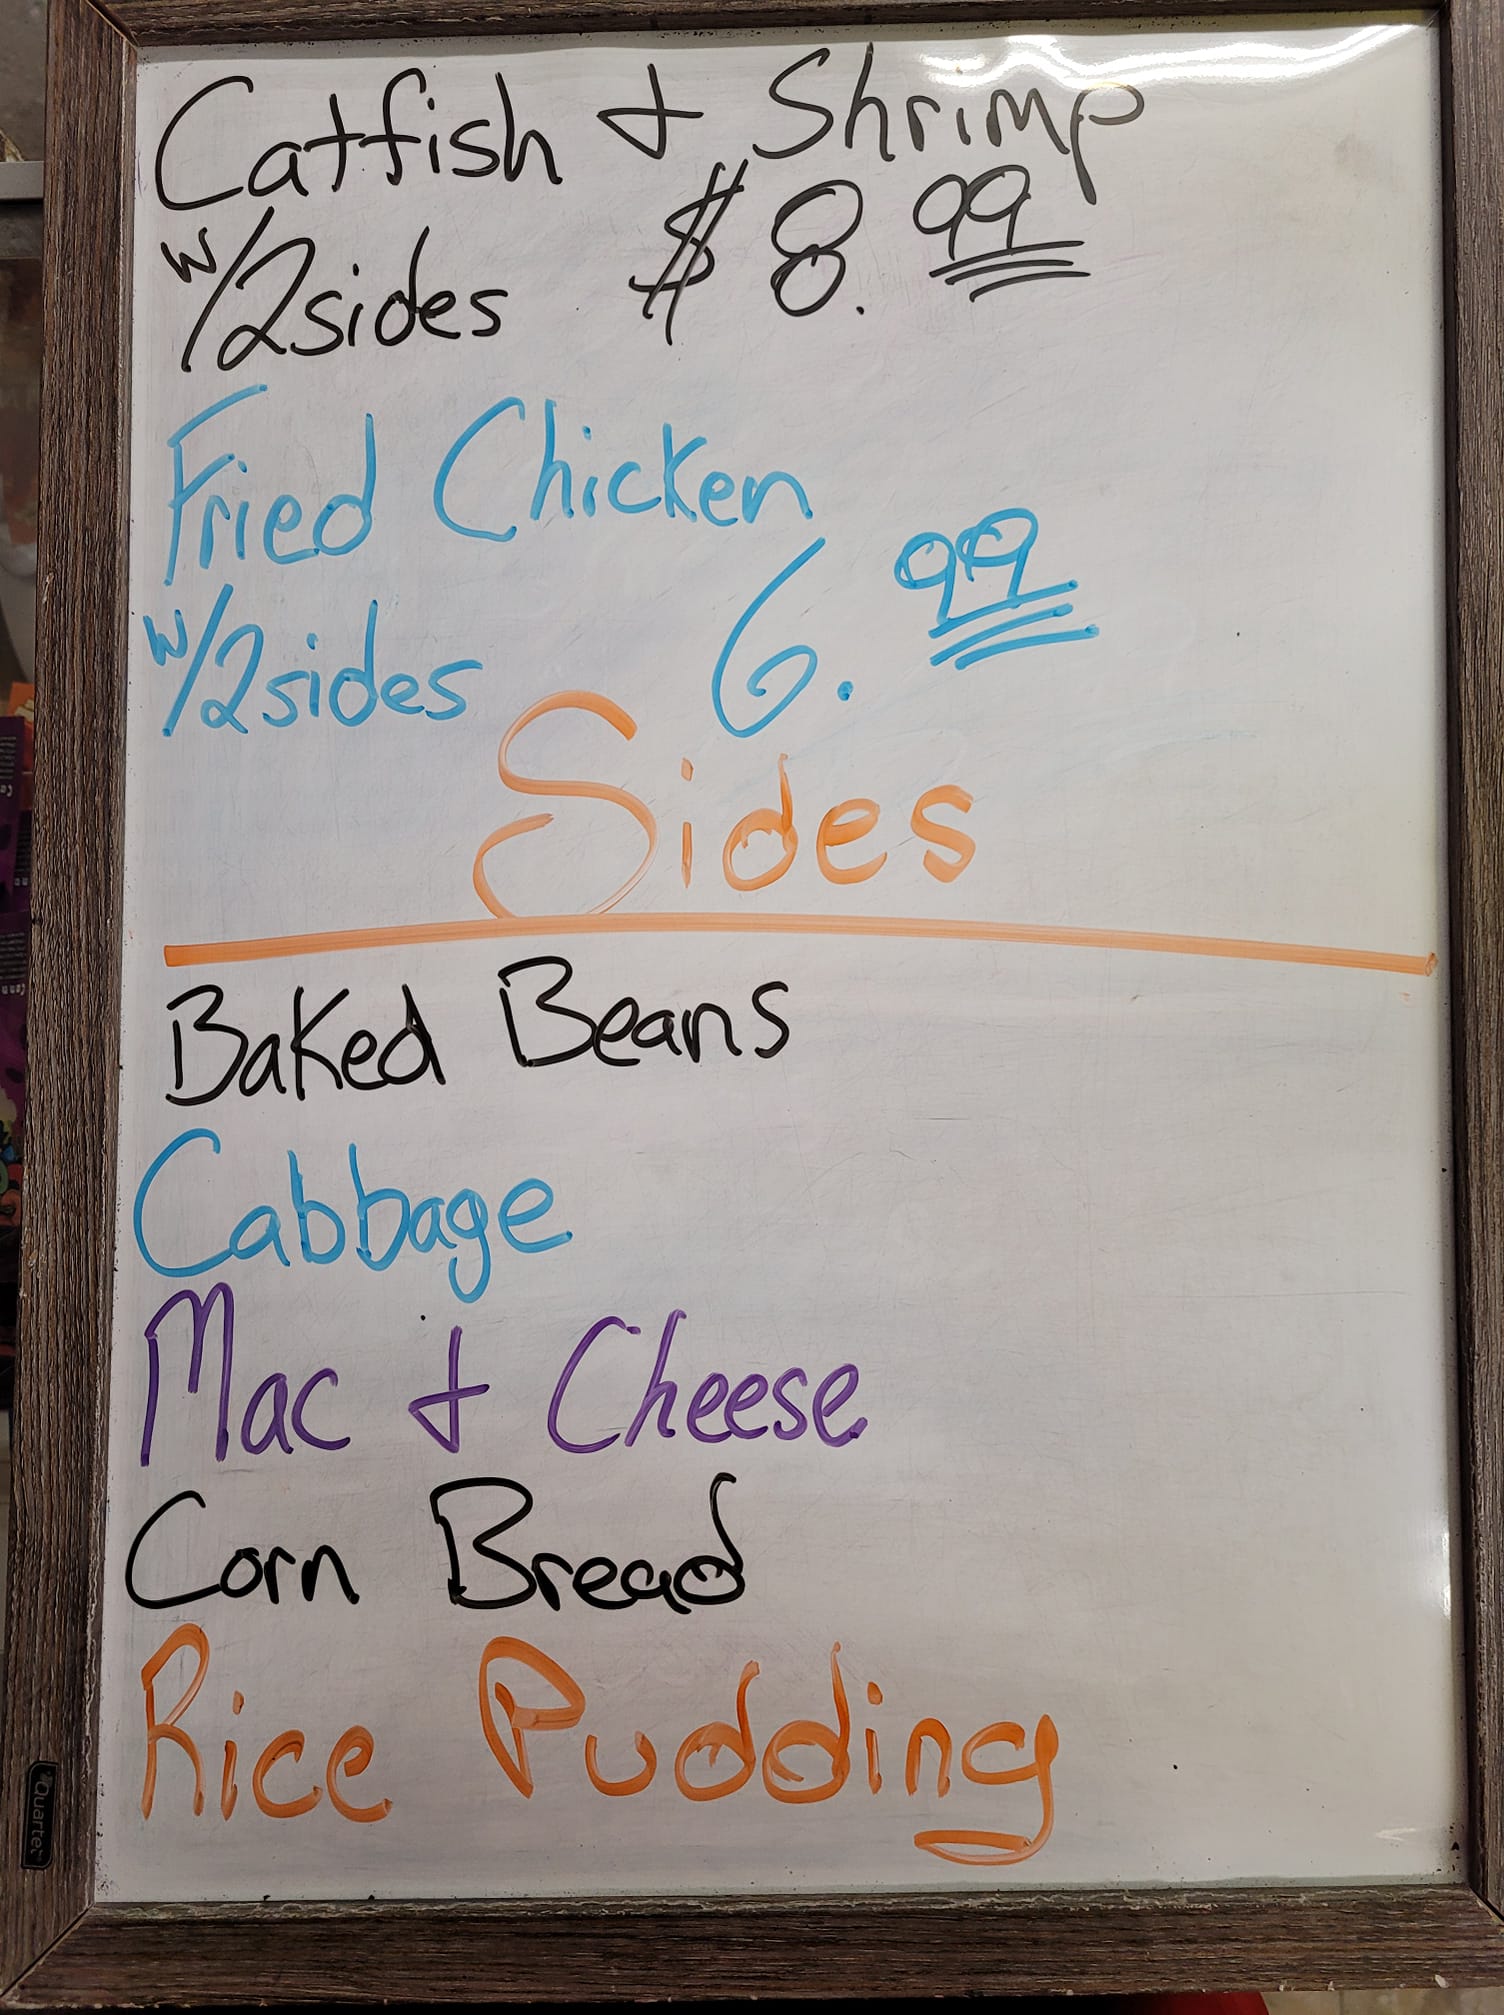 Catfish + Shrimp
w/2sides $8.99
Fried Chicken
w/2sides 6.99
Sides
Baked Beans
Cabbage
Mac + Cheese
Corn Bread
Rice Pudding
Quartet